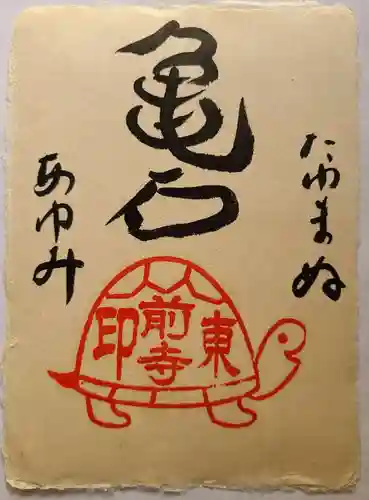 亀石
たゆまぬ
あゆみ
東
前寺
印